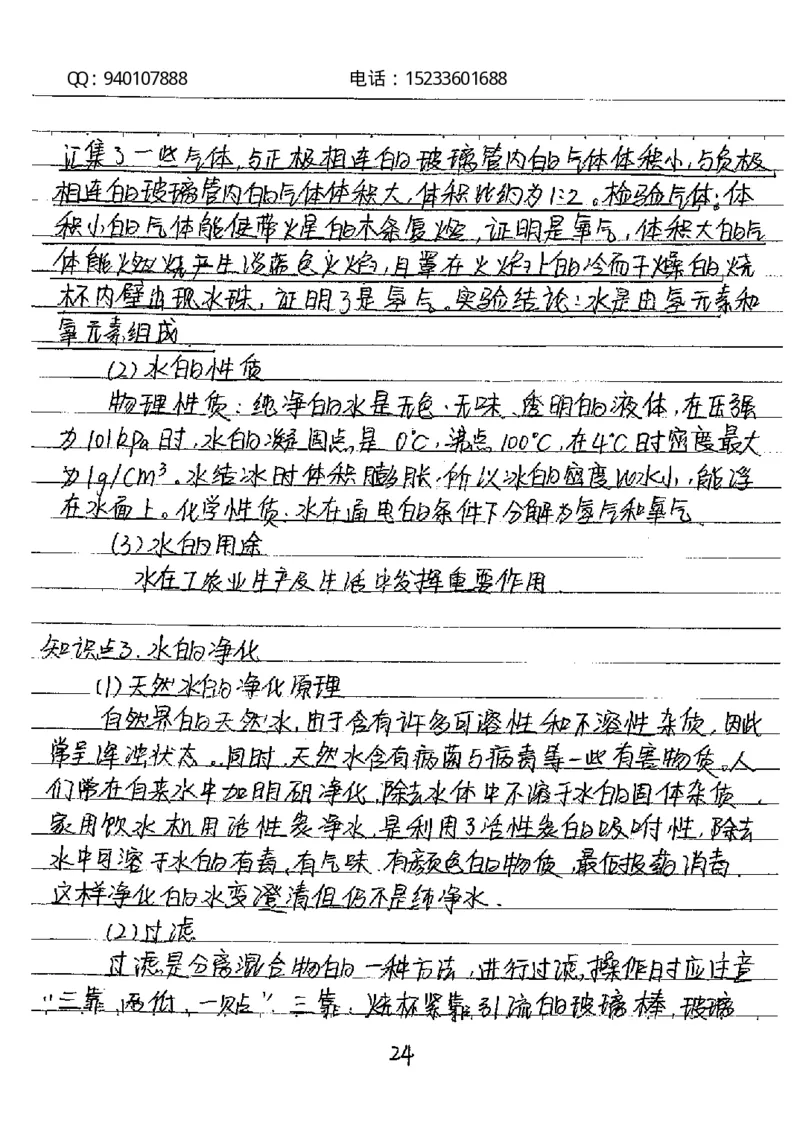 QQ：940107888 电话：15233601688
汇集了一些气体,与正极相连的玻璃管内的气体体积小,与负极
相连的玻璃管内的气体体积大,体积比约为1:2。检验气体:体
积小的气体能使带火星的木条复燃,证明是氧气,体积大的气
体能燃烧产生淡蓝色火焰,且罩在火焰上的冷而干燥的烧
杯内壁出现水珠,证明了是氢气。实验结论:水是由氢元素和
氧元素组成
(2)水的性质
物理性质:纯净的水是无色、无味、透明的液体,在压强
为101kpa时,水的凝固点是0℃,沸点100℃,在4℃时密度最大
为1g/cm³。水结冰时体积膨胀,所以冰的密度比水小,能浮
在水面上。化学性质:水在通电的条件下分解为氢气和氧气
(3)水的用途
水在工农业生产及生活中发挥重要作用.
知识点3.水的净化
(1)天然水的净化原理
自然界的天然水,由于含有许多可溶性和不溶性杂质,因此
常呈浑浊状态。同时,天然水含有病菌与病毒等一些有害物质。人
们常在自来水中加明矾净化,除去水体中不溶于水的固体杂质,
家用饮水机用活性炭净水,是利用了活性炭的吸附性,除去
水中可溶于水的有毒、有气味、有颜色的物质,最后投药消毒.
这样净化的水变澄清但仍不是纯净水.
(2)过滤
过滤是分离混合物的一种方法,进行过滤操作时应注意
“三靠、两低、一贴”.三靠:烧杯紧靠引流的玻璃棒,玻璃
24